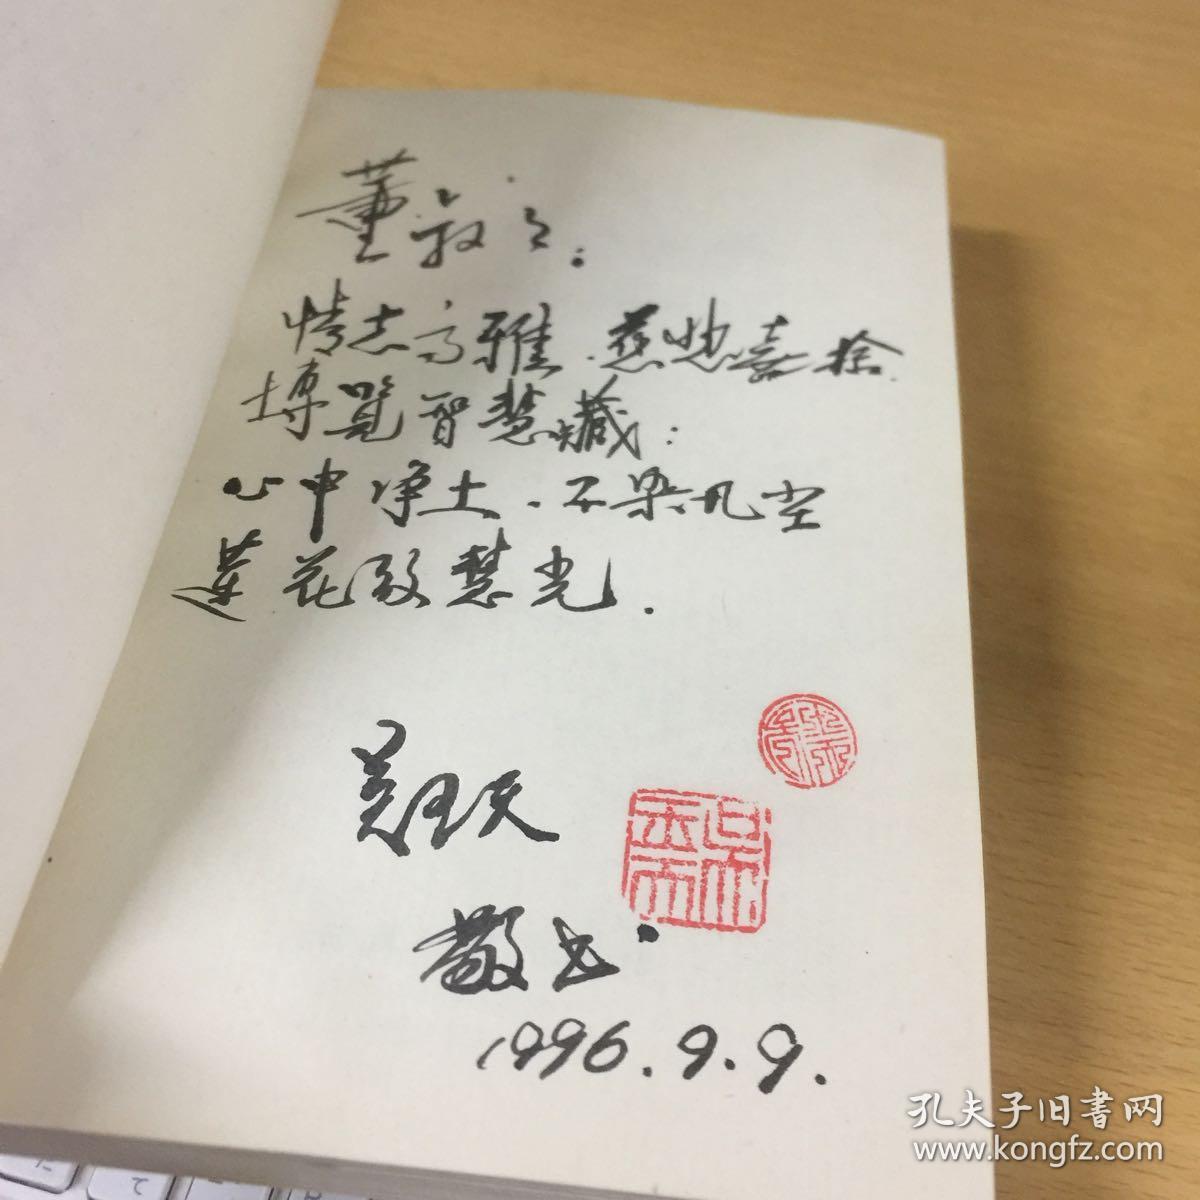 董
情志高雅.慈悲喜捨.
博览智慧藏:
心中净土.不染凡尘
莲花放慧光.
天
敬书
1996.9.9.
孔夫子旧書网
www.kongfz.com